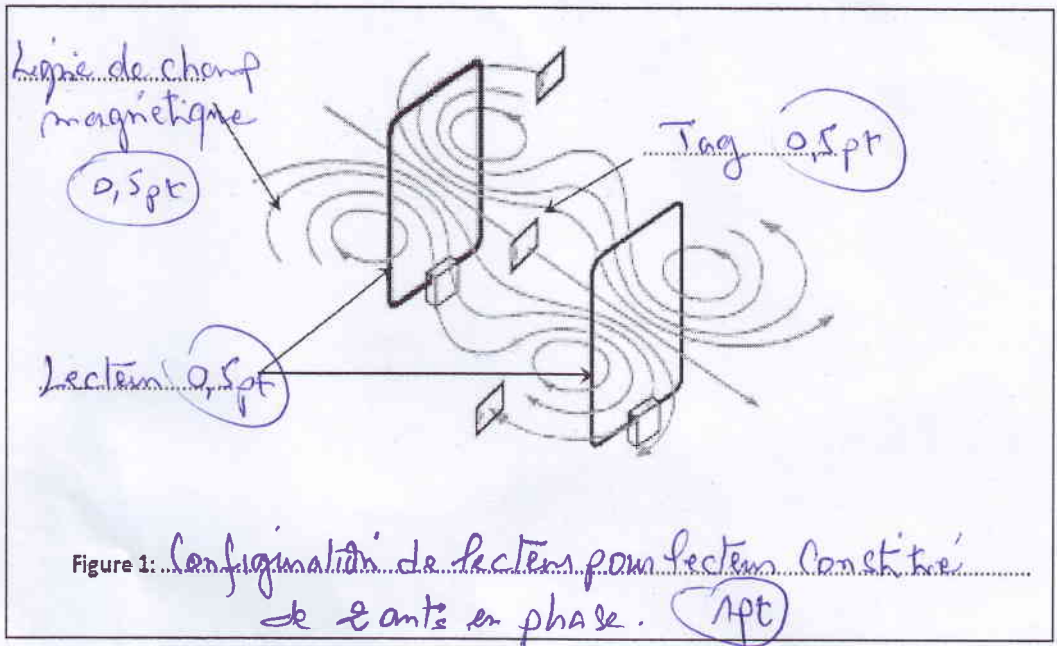 Ligne de champ
magnétique
0,5pt
Tag 0,5pt
Lecteur 0,5pt
Figure 1: Configuration de lecteur pour lecteur Constitué
de 2 ants en phase. 1pt